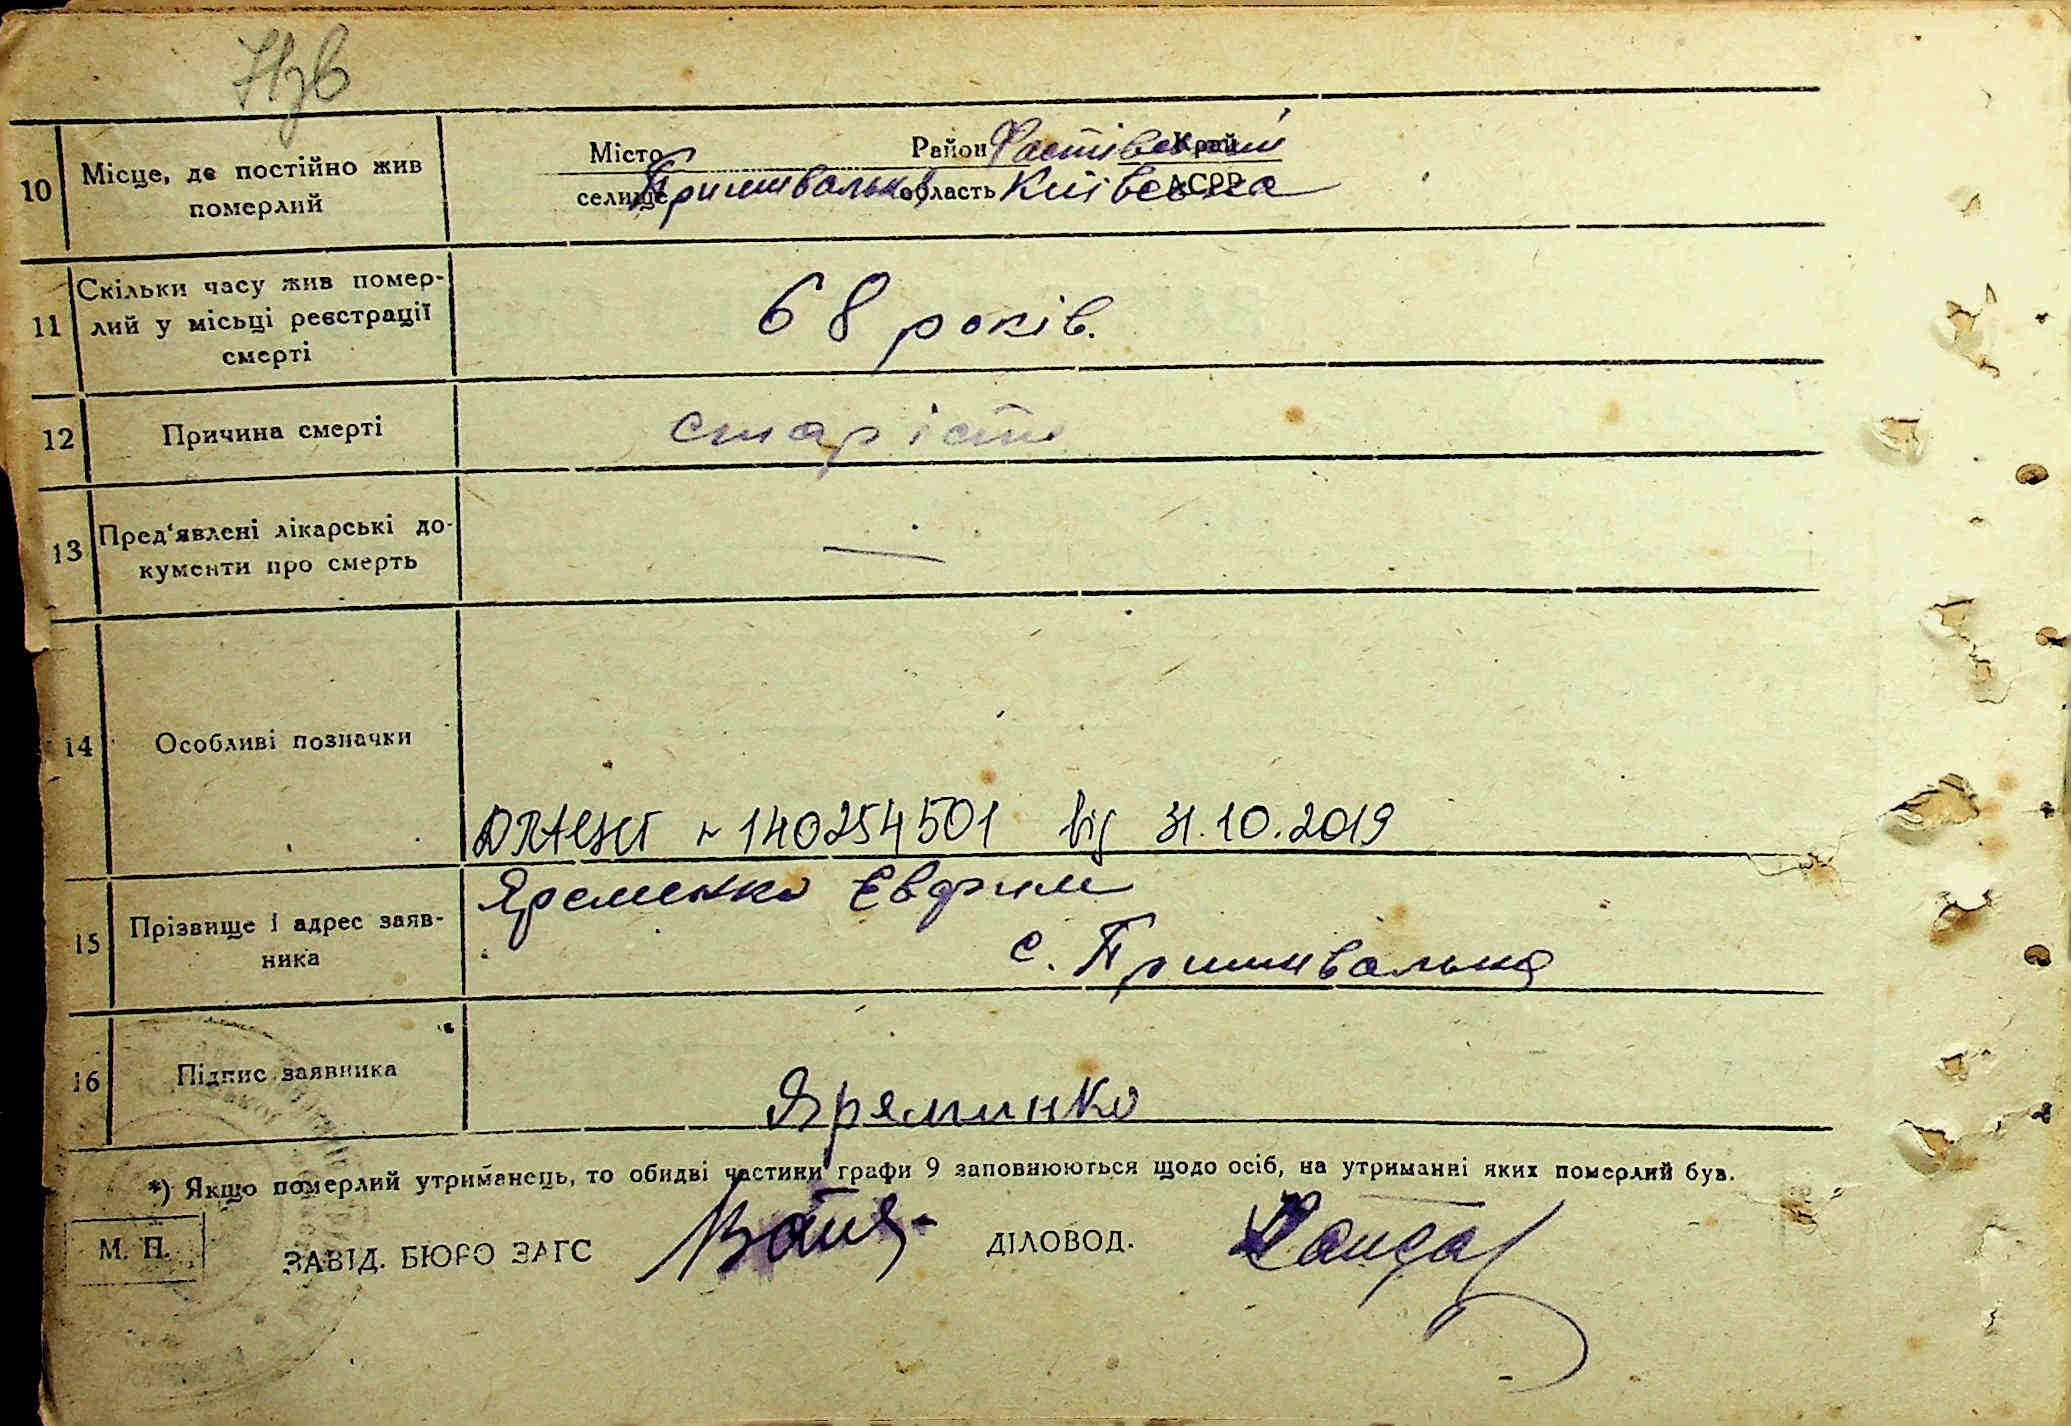 10 Місце, де постійно жив
померлий
Місто Район Фастівський Край
селище Пришивальня область Київська АСРР
11 Скільки часу жив помер-
лий у місьці реєстрації
смерті
68 років.
12 Причина смерті старість
13 Пред'явлені лікарські до-
кументи про смерть
—
14 Особливі позначки
№ 140254501 від 31.10.2019
15 Прізвище і адрес заяв-
ника
Яременко Евфим
с. Пришивальня
16 Підпис заявника Яреминко
*) Якщо померлий утриманець, то обидві частини графи 9 заповнюються щодо осіб, на утриманні яких померлий був.
М. П. ЗАВІД. БЮРО ЗАГС ДІЛОВОД.